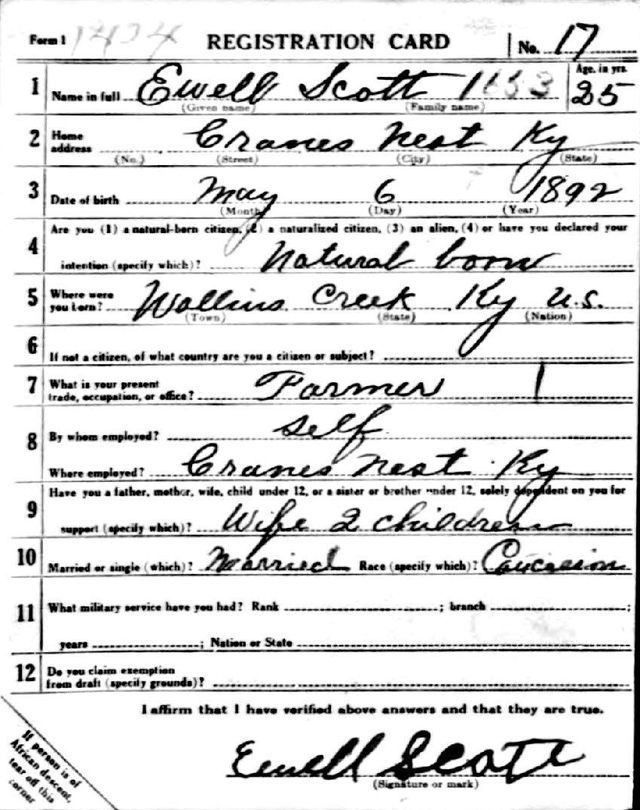 Form 1 1434 REGISTRATION CARD No. 17
1 Name in full Ewell Scott 1653 Age, in yrs. 25
(Given name) (Family name)
2 Home address Cranes Nest Ky
(No.) (Street) (City) (State)
3 Date of birth May 6 1892
(Month) (Day) (Year)
4 Are you (1) a natural-born citizen, (2) a naturalized citizen, (3) an alien, (4) or have you declared your
intention (specify which)? Natural born
5 Where were you born? Wallins Creek Ky U.S.
(Town) (State) (Nation)
6 If not a citizen, of what country are you a citizen or subject?
7 What is your present trade, occupation, or office? Farmer 1
8 By whom employed? self
Where employed? Cranes Nest Ky
9 Have you a father, mother, wife, child under 12, or a sister or brother under 12, solely dependent on you for
support (specify which)? Wife 2 children
10 Married or single (which)? Married Race (specify which)? Caucasion
11 What military service have you had? Rank ; branch ;
years ; Nation or State
12 Do you claim exemption from draft (specify grounds)?
I affirm that I have verified above answers and that they are true.
Ewell Scott
(Signature or mark)
If person is of
African descent,
tear off this
corner